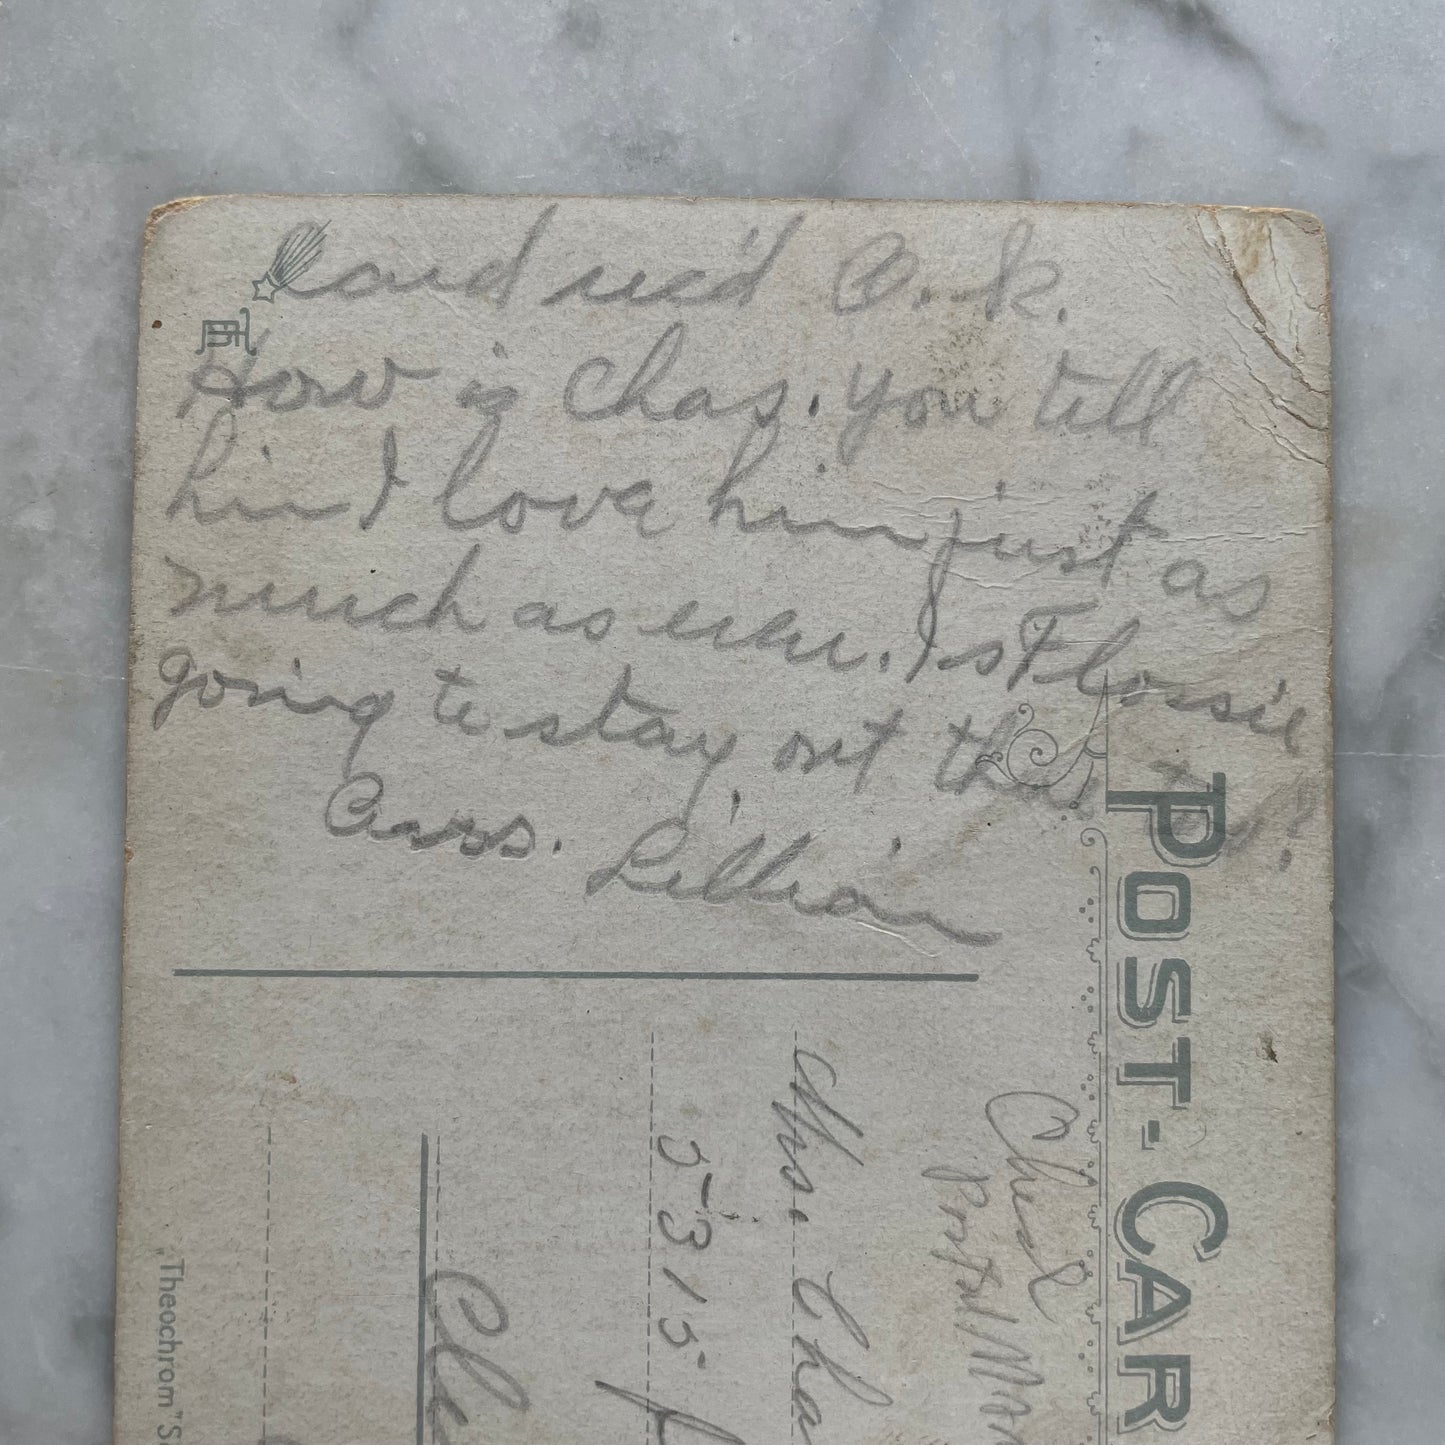 Card rec'd O.K.
How is Chas. you tell
him I love him just as
much as ever. Is Flossie
going to stay out there
Lillian
POST-CAR
Chest
Mrs. Cha
5315
Cle
„Theochrom" Se